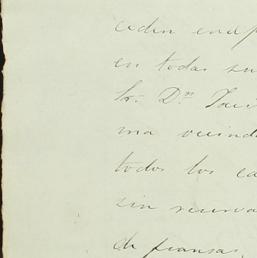 ceden en el p
en todas su
Sr. Dn. Javi
ma vecind
todos los ca
sin reserva
de fianzas,